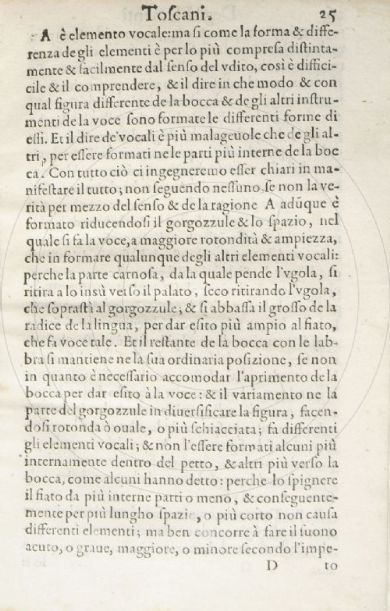 Toscani. 25
A è elemento vocale: ma si come la forma & diffe-
renza degli elementi è per lo più compresa distinta-
mente & facilmente dal senso del vdito, così è diffici-
cile & il comprendere, & il dire in che modo & con
qual figura differente de la bocca & de gli altri instru-
menti de la voce sono formate le differenti forme di
essi. Et il dire de'vocali è più malageuole che de gli al-
tri, per essere formati ne le parti più interne de la boc
ca. Con tutto ciò ci ingegneremo esser chiari in ma-
nifestare il tutto; non seguendo nessuno se non la ve-
rità per mezzo del senso & de la ragione A adũque è
formato riducendosi il gorgozzule & lo spazio, nel
quale si fa la voce, a maggiore rotondità & ampiezza,
che in formare qualunque degli altri elementi vocali:
perche la parte carnosa, da la quale pende l'vgola, si
ritira a lo insù verso il palato, seco ritirando l'vgola,
che soprastà al gorgozzule; & si abbassa il grosso de la
radice de la lingua, per dar esito più ampio al fiato,
che fa voce tale. Et il restante de la bocca con le lab-
bra si mantiene ne la sua ordinaria posizione, se non
in quanto è necessario accomodar l'aprimento de la
bocca per dar esito à la voce: & il variamento ne la
parte del gorgozzule in diuersificare la figura, facen-
dosi rotonda ò ouale, o più schiacciata; fa differenti
gli elementi vocali; & non l'essere formati alcuni più
internamente dentro del petto, & altri più verso la
bocca, come alcuni hanno detto: perche lo spignere
il fiato da più interne parti o meno, & conseguente-
mente per più lungho spazio, o più corto non causa
differenti elementi; ma ben concorre à fare il suono
acuto, o graue, maggiore, o minore secondo l'impe-
D to